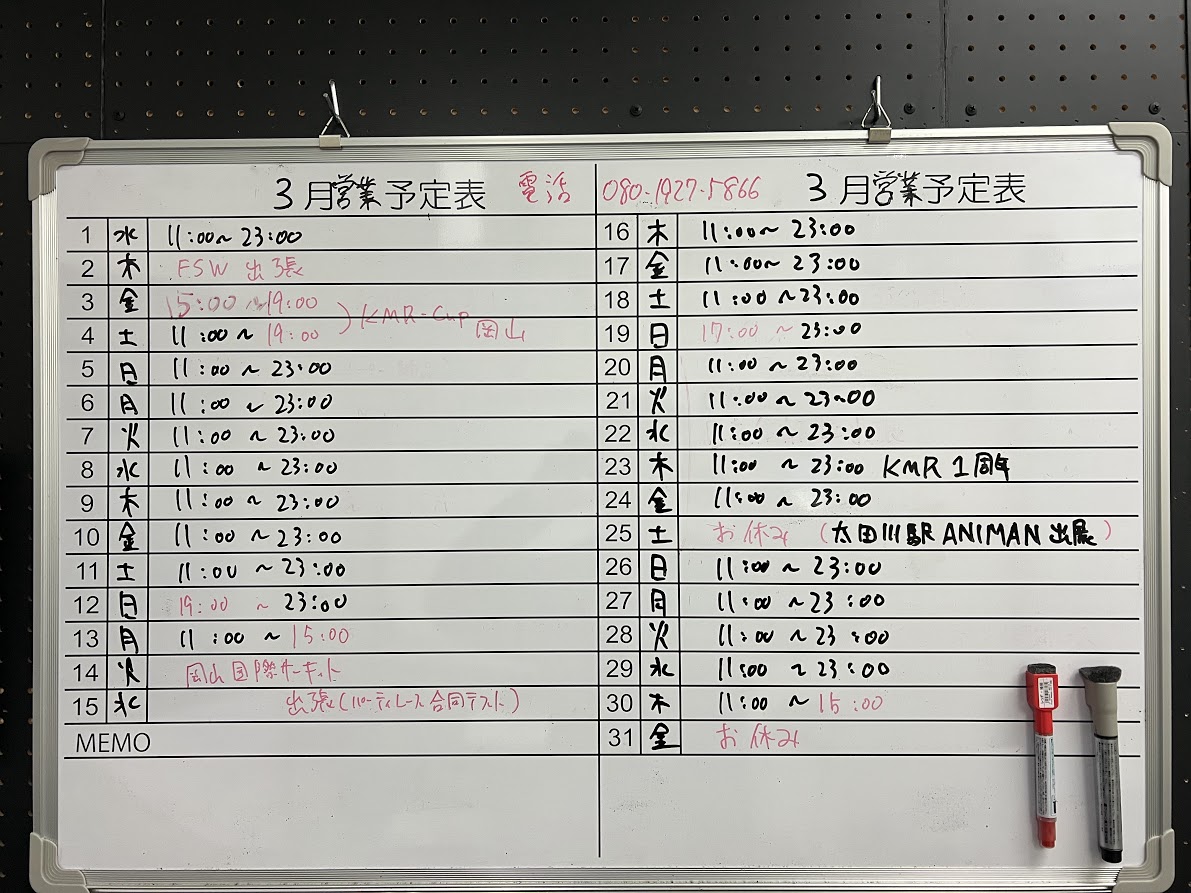 3月営業予定表 電話 080-1927-5866
1 水 11:00~23:00
2 木 FSW 出張
3 金 15:00~19:00
4 土 11:00~19:00 ) KMR-Cup 岡山
5 日 11:00~23:00
6 月 11:00~23:00
7 火 11:00~23:00
8 水 11:00~23:00
9 木 11:00~23:00
10 金 11:00~23:00
11 土 11:00~23:00
12 日 19:00~23:00
13 月 11:00~15:00
14 火 岡山国際サーキット
15 水 出張(パーティレース合同テスト)
MEMO
3月営業予定表
16 木 11:00~23:00
17 金 11:00~23:00
18 土 11:00~23:00
19 日 17:00~23:00
20 月 11:00~23:00
21 火 11:00~23:00
22 水 11:00~23:00
23 木 11:00~23:00 KMR 1周年
24 金 11:00~23:00
25 土 お休み (太田川駅 ANIMAN 出展)
26 日 11:00~23:00
27 月 11:00~23:00
28 火 11:00~23:00
29 水 11:00~23:00
30 木 11:00~15:00
31 金 お休み